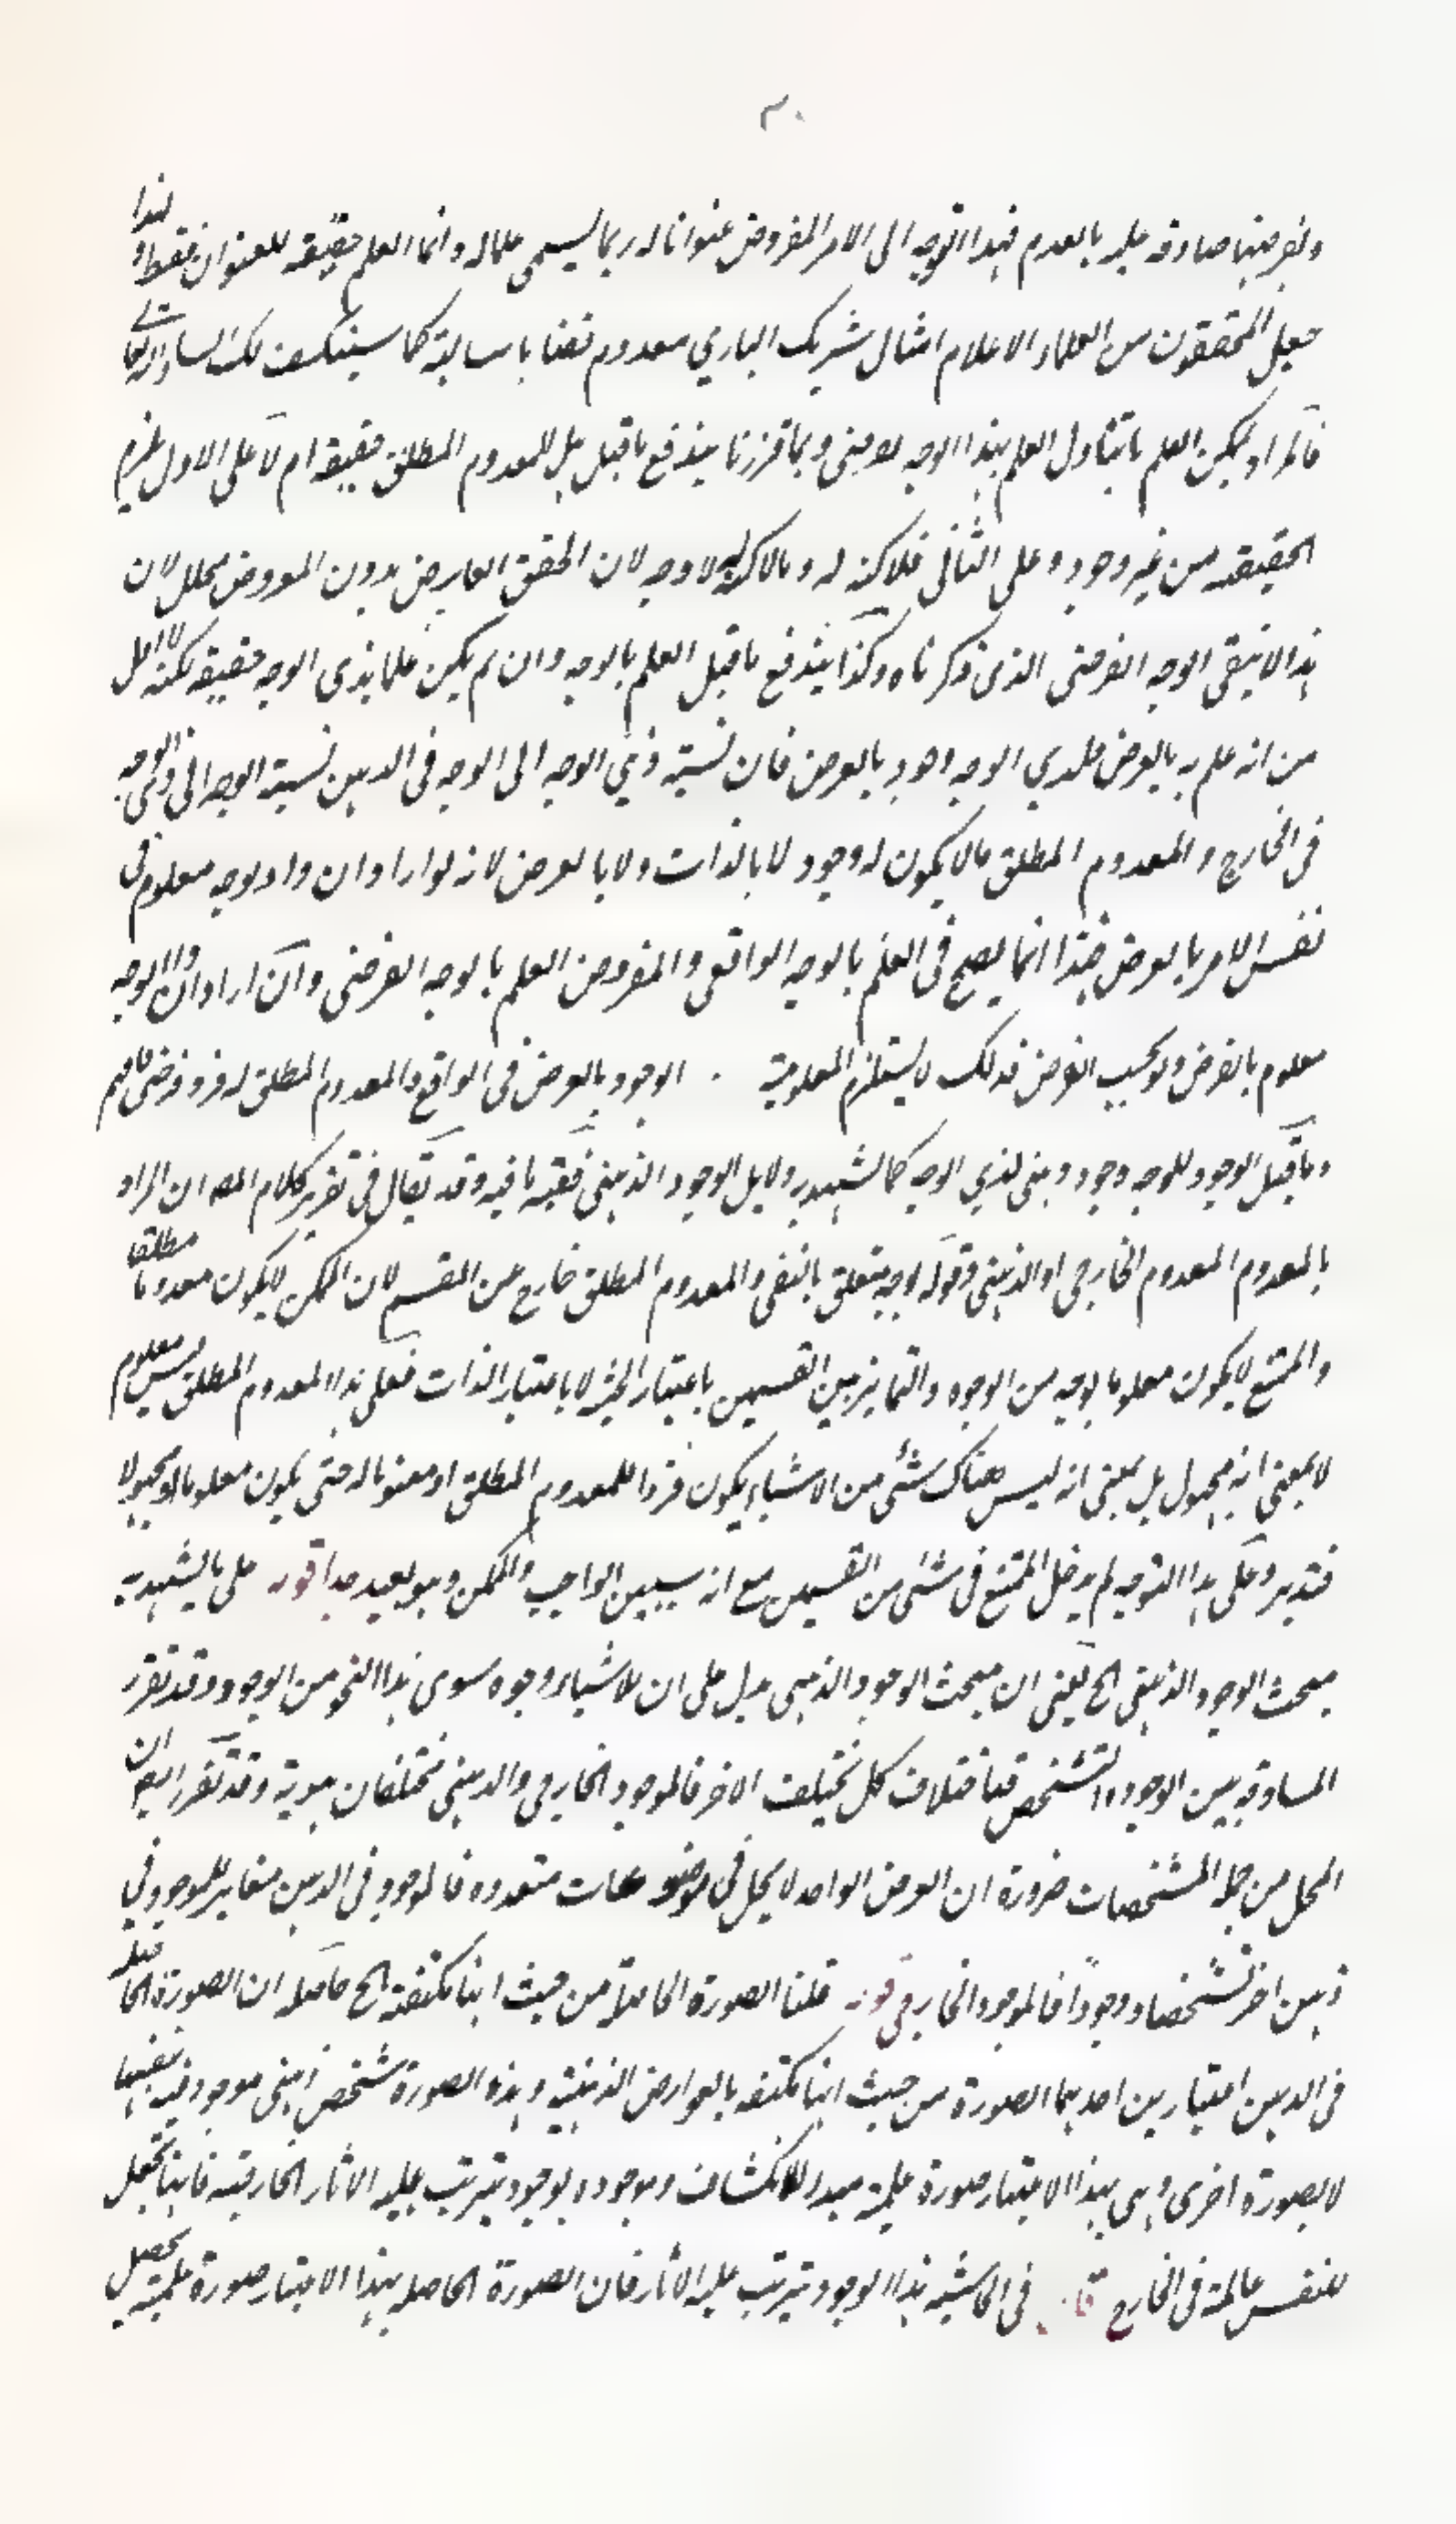 ٣٠
ونفرضها صادقة عليه بالعدم فهذا الوجه الى الامر المفروض عنوانا له ربما يسمى علما له وانما العلم حقيقة للعنوان فقط ولهذا
جعل المحققون من العلماء الاعلام امثال شريك الباري معدوم قضايا سالبة كما سينكشف لك ان شاء الله تعالى
فالمراد يمكن العلم ما يتناول العلم بهذا الوجه وبما قررنا يندفع ما قيل هل للمعدوم المطلق حقيقة ام لا على الاول يلزم
الحقيقة من غير وجود وعلى الثاني فلا كنه له وما لا كنه له لا وجه لان تحقق العارض بدون المعروض محال لان
هذا لا ينفي الوجه الفرضي الذي ذكرناه وكذا يندفع ما قيل العلم بالوجه وان لم يكن علما بذي الوجه حقيقة لكنه لا اقل
من انه علم به بالعرض فلذي الوجه وجود بالعرض فان نسبة ذي الوجه الى الوجه في الذهن نسبة الوجه الى ذي الوجه
في الخارج والمعدوم المطلق ما لا يكون له وجود لا بالذات ولا بالعرض لانه لو اراد ان ذا الوجه معلوم في
نفس الامر بالعرض فهذا انما يصح في العلم بالوجه الواقعي والمفروض العلم بالوجه الفرضي وان اراد ان ذا الوجه
معلوم بالفرض وبحسب الفرض فذلك لا يستلزم المعلومية الوجود بالعرض في الواقع والمعدوم المطلق له فرد فرضي فافهم
وما قيل الوجود للوجه وجود ذهني لذي الوجه كما يشهد به دلايل الوجود الذهني ففيه ما فيه وقد يقال في تقرير كلام المص ان المراد
بالمعدوم المعدوم الخارجي او الذهني وقوله بوجه متعلق بالنفي والمعدوم المطلق خارج عن القسم لان الممكن لا يكون معدوما مطلقا
والممتنع لا يكون معلوما بوجه من الوجوه والتمايز بين القسمين باعتبار الحيز لا باعتبار الذات فعلى هذا المعدوم المطلق ليس معلوم
لا بمعنى انه مجهول بل بمعنى انه ليس هناك شئ من الاشياء يكون فردا للمعدوم المطلق او معنونا له حتى يكون معلوما او مجهولا
فتدبر وعلى هذا التوجيه لم يدخل الممتنع في شئ من القسمين مع انه سيبين الواجب والممكن وهو بعيد جدا قوله على ما يشهد به
مبحث الوجود الذهني الخ يعني ان مبحث الوجود الذهني يدل على ان للاشياء وجود سوى هذا النحو من الوجود وقد تقرر
المساوقة بين الوجود والتشخص فباختلاف كل يختلف الاخر فالموجود الخارجي والذهني مختلفان هوية وقد تقرر ايضا ان
المحل من جملة المشخصات ضرورة ان العرض الواحد لا يحل في موضوعات متعددة فالموجود في الذهن مغاير للموجود في
ذهن اخر تشخصا ووجودا فالموجود الخارجي قوله قلنا الصورة الحاصلة من حيث انها مكتنفة الخ حاصله ان الصورة الحاصلة
في الذهن اعتبارين احدهما الصورة من حيث انها مكتنفة بالعوارض الذهنية وهذه الصورة شخص ذهني موجود فيه بنفسها
لا بصورة اخرى وهي بهذا الاعتبار صورة علمية مبدأ للانكشاف وموجودة بوجود يترتب عليه الاثار الخارجية فانها تجعل
للنفس عالمة في الخارج قال في الحاشية هذا الوجود يترتب عليه الاثار فان الصورة الحاصلة بهذا الاعتبار صورة علمية يحصل